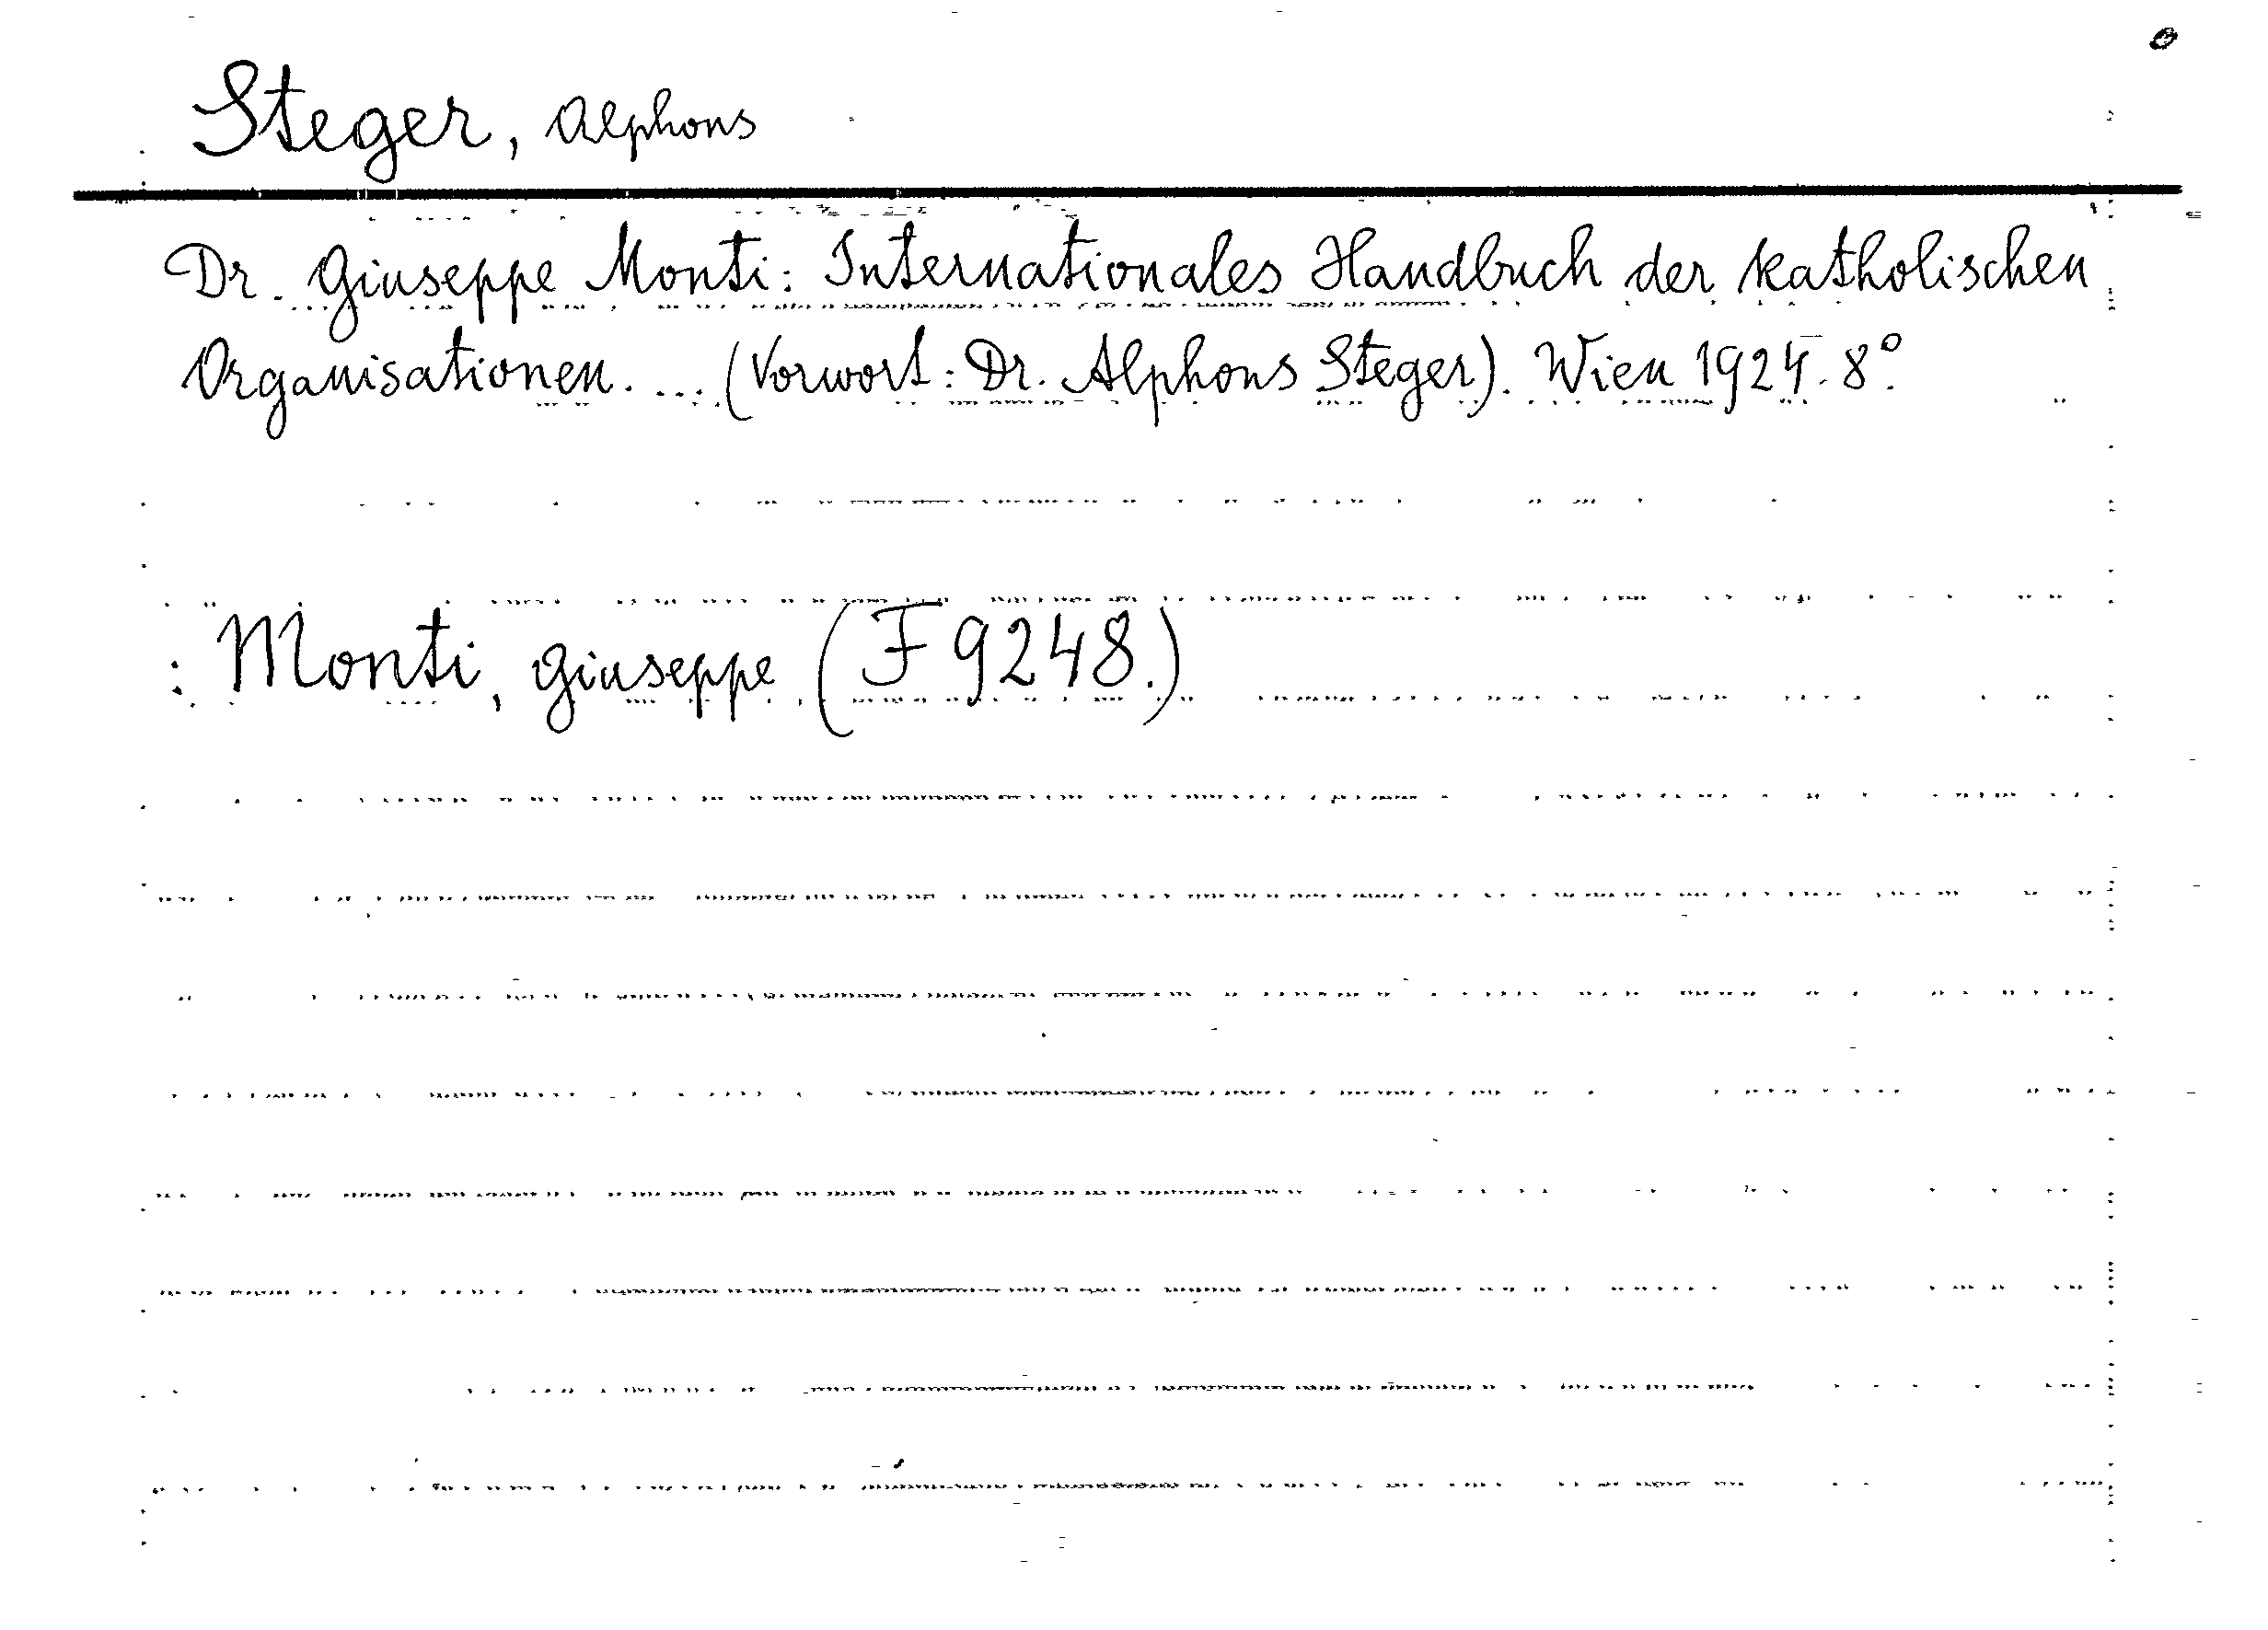 Steger, Alphons
Dr. Giuseppe Monti: Internationales Handbuch der katholischen
Organisationen. ... (Vorwort: Dr. Alphons Steger). Wien 1924. 8°.
: Monti, Giuseppe (F 9248.)